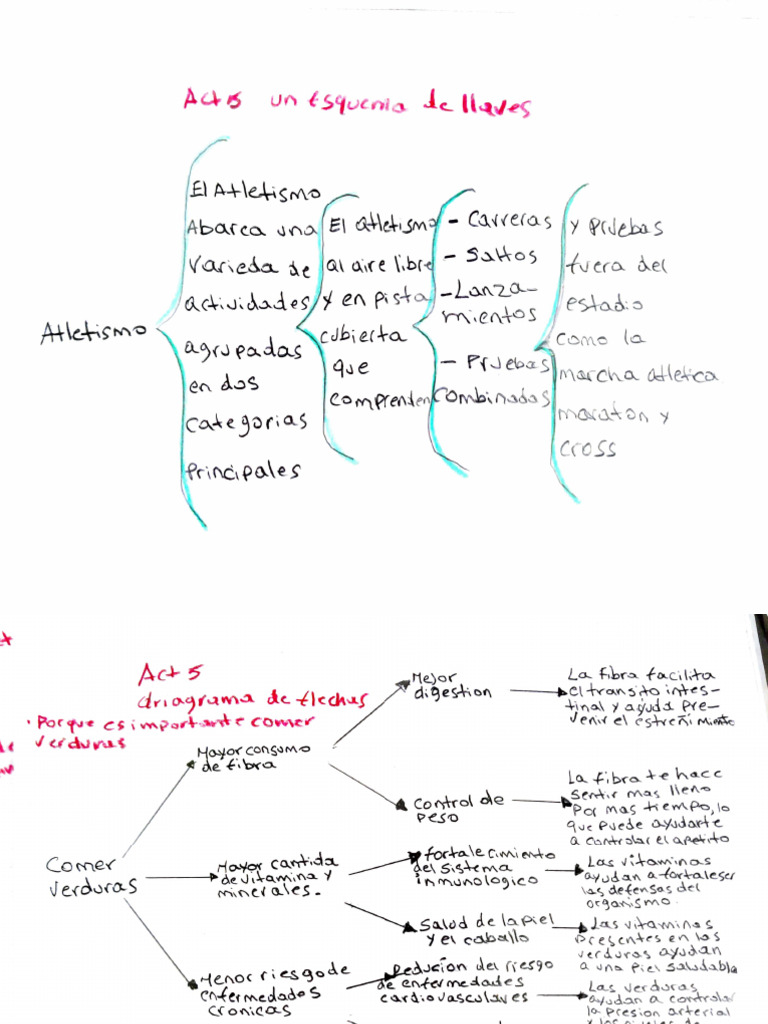 Act 5 un Esquema de llaves
Atletismo
El Atletismo
Abarca una
varieda de
actividades
agrupadas
en dos
categorias
principales
El atletismo
al aire libre
y en pista
cubierta
que
comprenden
- Carreras
- Saltos
- Lanza-
mientos
- Pruebas
combinadas
y Pruebas
fuera del
estadio
como la
marcha atletica
maraton y
cross
Act 5
driagrama de flechas
• Porque es importante comer
verduras
Comer
verduras
Mayor consumo
de fibra
Mejor
digestion
La fibra facilita
el transito intes-
tinal y ayuda pre-
venir el estreñimiento
Control de
peso
La fibra te hace
sentir mas lleno
por mas tiempo, lo
que puede ayudarte
a controlar el apetito
Mayor cantida
de vitamina y
minerales.
fortalecimiento
del sistema
inmunologico
Las vitaminas
ayudan a fortaleser
las defensas del
organismo.
Salud de la piel
y el caballo
Las vitaminas
presentes en las
verduras ayudan
a una piel saludable
Menor riesgo de
enfermedades
cronicas
Reducion del riesgo
de enfermedades
cardiovasculares
Las verduras
ayudan a controlar
la presion arterial
y los niveles de